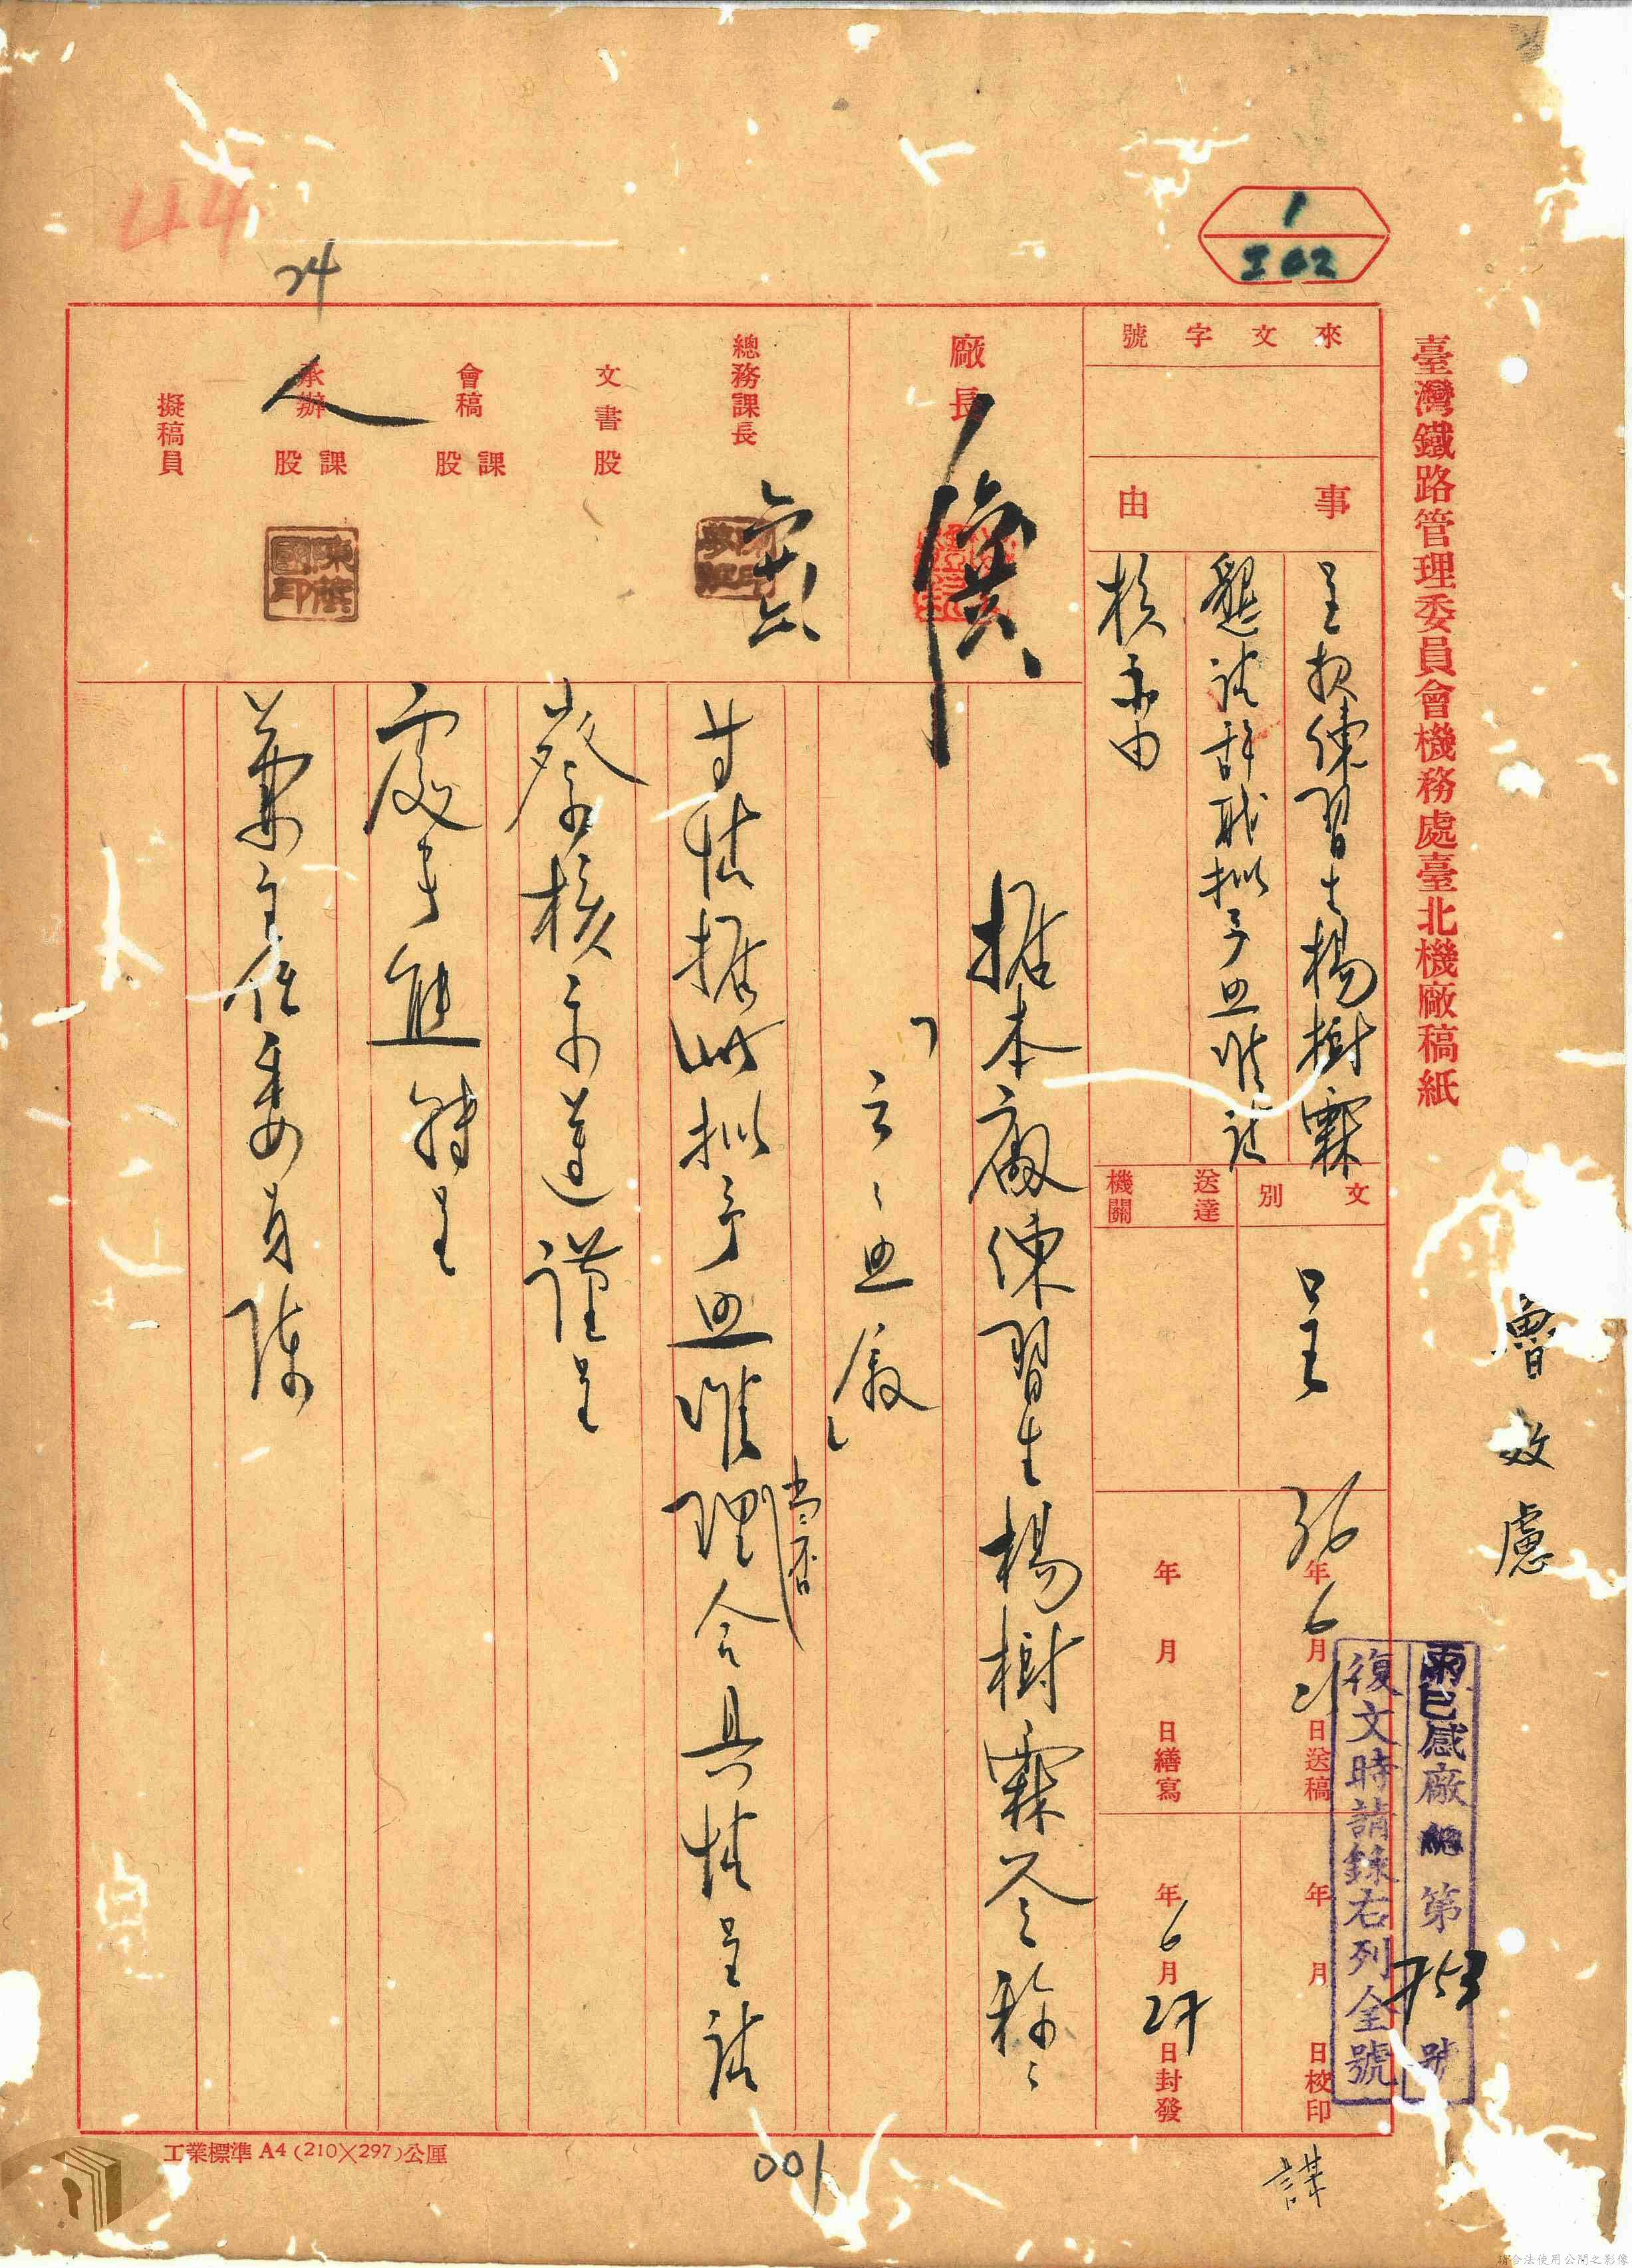 臺灣鐵路管理委員會機務處臺北機廠稿紙
1
工02
來文字號
事由
呈報練習生楊樹霖
懇請辭職擬予照准請
核示由
文別
呈
送達機關
36年6月21日送稿
年月日繕寫
年月日校印
年6月27日封發
廠長
總務課長
文書股
會稿課股
承辦課股
人
擬稿員
據本廠練習生楊樹霖簽稱、
「云、照敘」
等情據此擬予照准理合具情呈請
當否
鑒核示遵謹呈
處長
兼主任委員陳
雨巳感廠總第號
復文時請錄右列全號
24
44
001
工業標準A4(210×297)公厘
請合法使用公開之影像